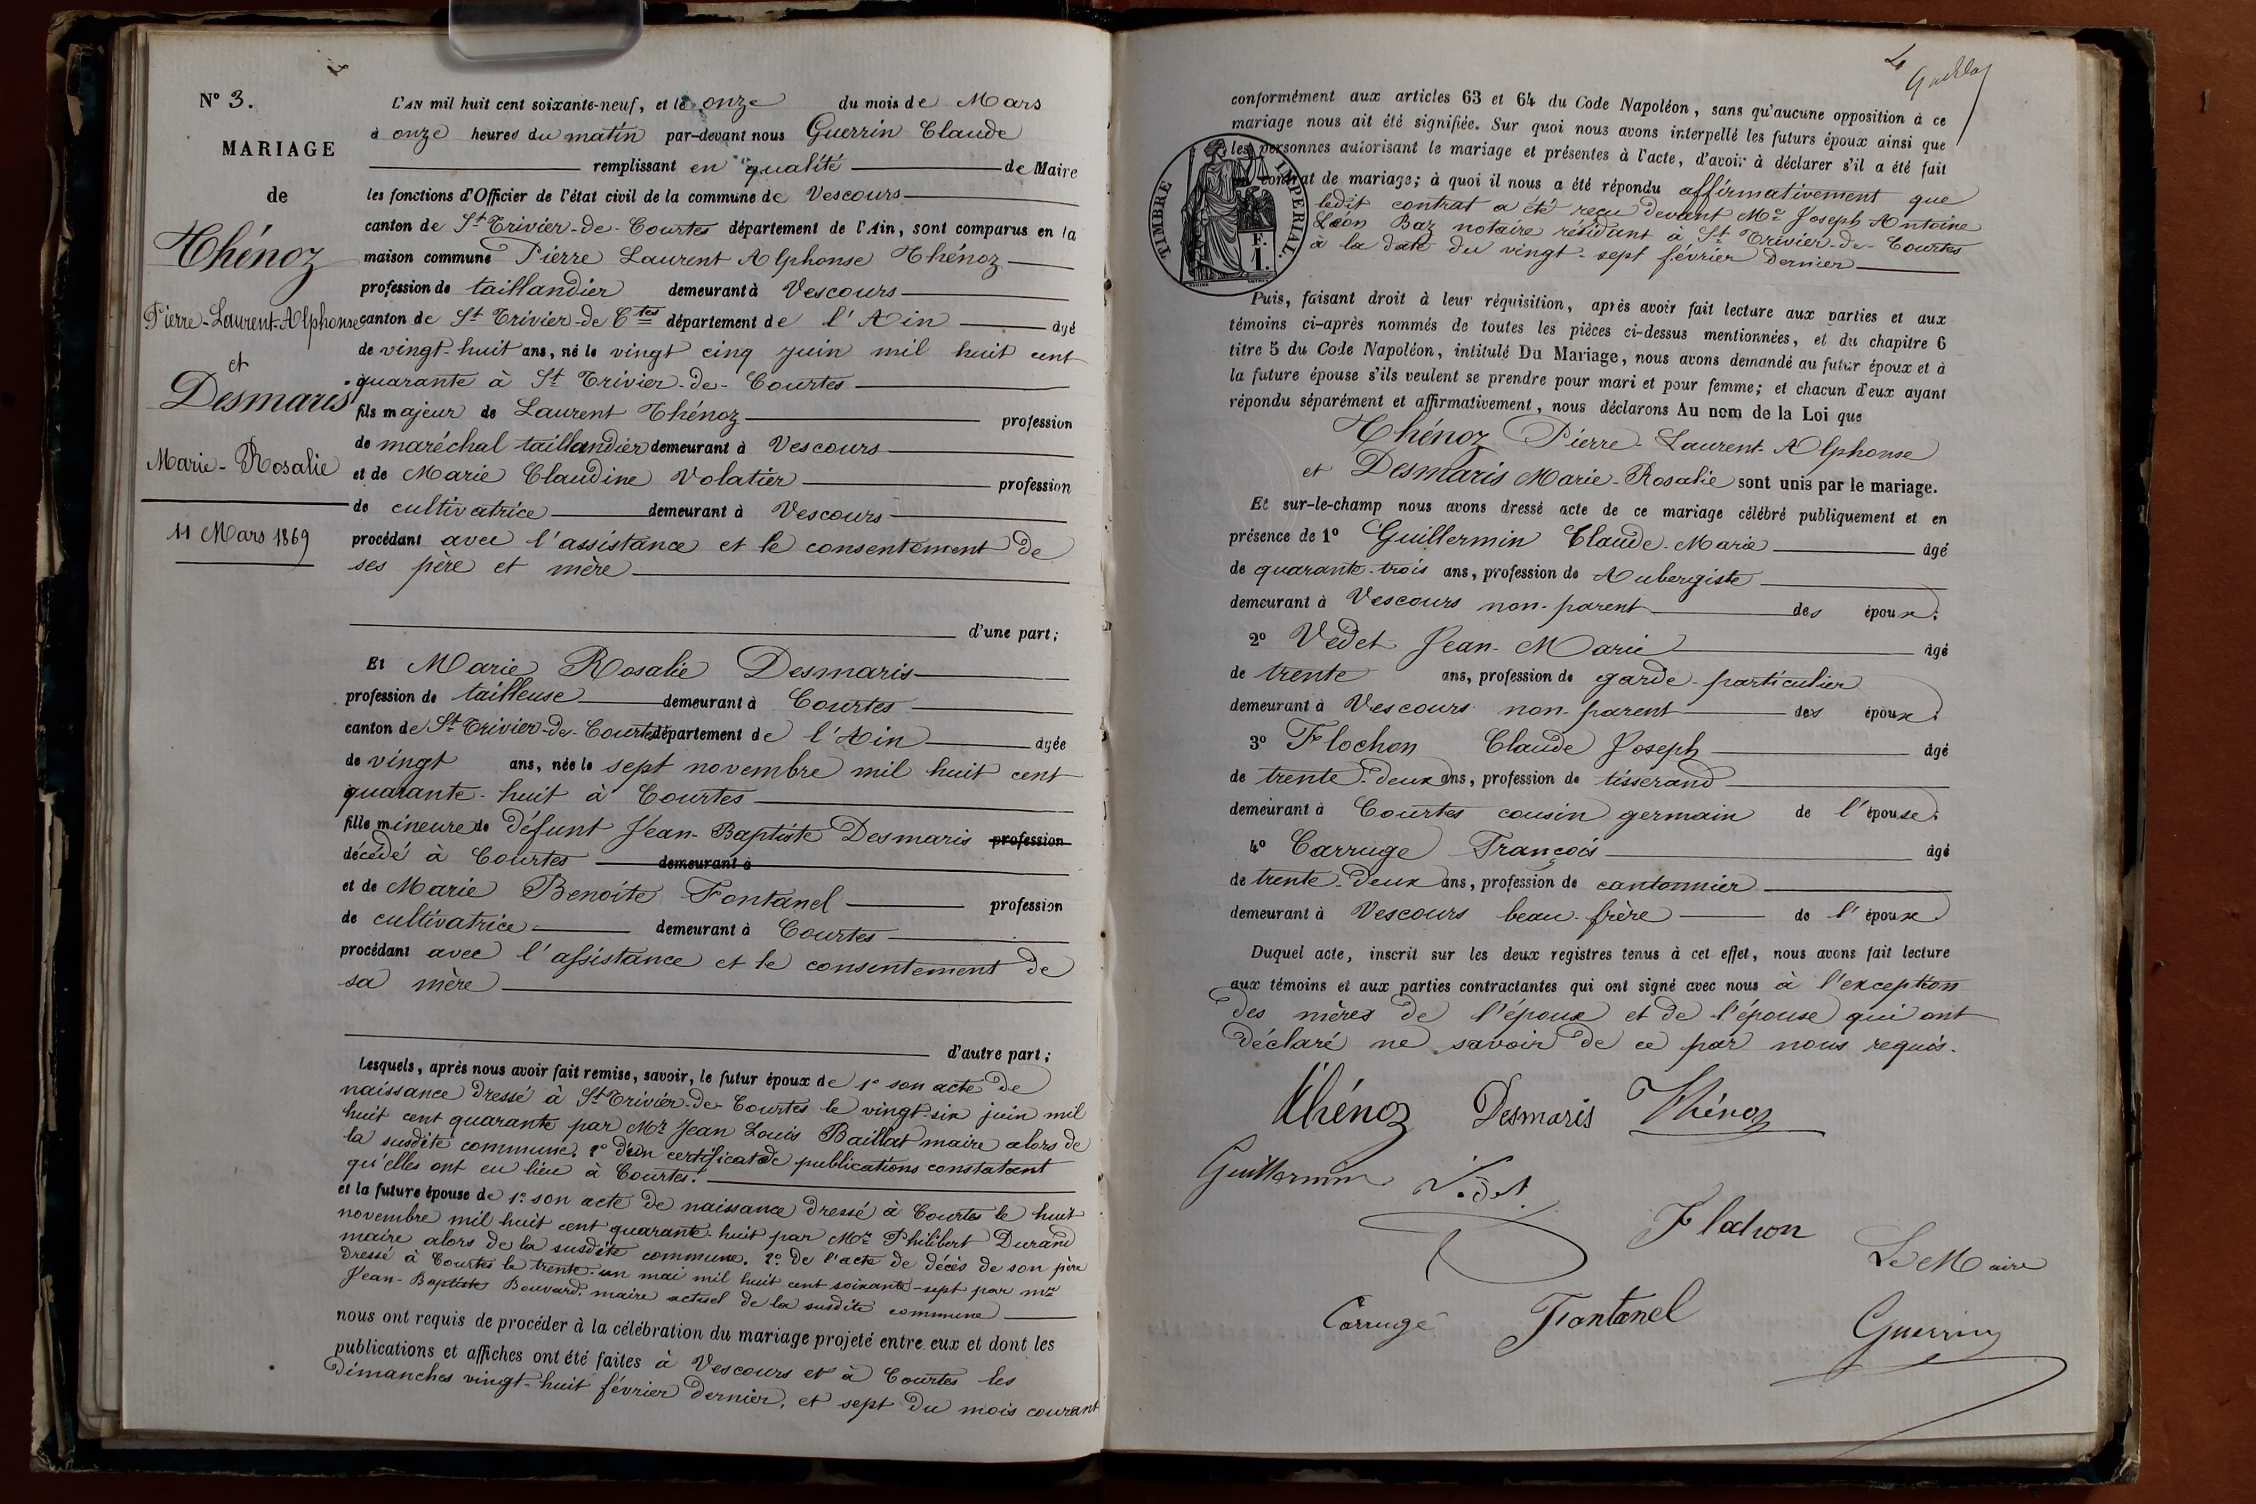 N° 3.
MARIAGE
de
Thénoz
Pierre-Laurent-Alphonse
et
Desmaris
Marie-Rosalie
11 Mars 1869
L'AN mil huit cent soixante-neuf, et le onze du mois de Mars
à onze heures du matin par-devant nous Guerrin Claude
remplissant en qualité de Maire
les fonctions d'Officier de l'état civil de la commune de Vescours
canton de St Trivier-de-Courtes département de l'Ain, sont comparus en la
maison commune Pierre Laurent Alphonse Thénoz
profession de taillandier demeurant à Vescours
canton de St Trivier-de Ctes département de l'Ain âgé
de vingt-huit ans, né le vingt cinq juin mil huit cent
quarante à St Trivier-de-Courtes
fils majeur de Laurent Thénoz profession
de maréchal taillandier demeurant à Vescours
et de Marie Claudine Volatier profession
de cultivatrice demeurant à Vescours
procédant avec l'assistance et le consentement de
ses père et mère
d'une part;
Et Marie Rosalie Desmaris
profession de tailleuse demeurant à Courtes
canton de St Trivier-de-Courtes département de l'Ain âgée
de vingt ans, née le sept novembre mil huit cent
quarante-huit à Courtes
fille mineure de défunt Jean-Baptiste Desmaris profession
décédé à Courtes demeurant à
et de Marie Benoite Fontanel profession
de cultivatrice demeurant à Courtes
procédant avec l'assistance et le consentement de
sa mère
d'autre part;
Lesquels, après nous avoir fait remise, savoir, le futur époux de 1° son acte de
naissance dressé à St Trivier-de-Courtes le vingt-six juin mil
huit cent quarante par Mr Jean Louis Baillat maire alors de
la susdite commune. 2° d'un certificat de publications constatant
qu'elles ont eu lieu à Courtes.
et la future épouse de 1° son acte de naissance dressé à Courtes le huit
novembre mil huit cent quarante-huit par Mr Philibert Durand
maire alors de la susdite commune. 2° de l'acte de décès de son père
dressé à Courtes le trente-un mai mil huit cent soixante-sept par Mr
Jean-Baptiste Bouvard. maire actuel de la susdite commune
nous ont requis de procéder à la célébration du mariage projeté entre eux et dont les
publications et affiches ont été faites à Vescours et à Courtes les
dimanches vingt-huit février dernier, et sept du mois courant
4
conformément aux articles 63 et 64 du Code Napoléon, sans qu'aucune opposition à ce
mariage nous ait été signifiée. Sur quoi nous avons interpellé les futurs époux ainsi que
les personnes autorisant le mariage et présentes à l'acte, d'avoir à déclarer s'il a été fait
contrat de mariage; à quoi il nous a été répondu affirmativement que
ledit contrat a été reçu devant Me Joseph Antoine
Léon Baz notaire résidant à St Trivier-de-Courtes
à la date du vingt-sept février dernier
TIMBRE IMPERIAL.
E.
1.
Puis, faisant droit à leur réquisition, après avoir fait lecture aux parties et aux
témoins ci-après nommés de toutes les pièces ci-dessus mentionnées, et du chapitre 6
titre 5 du Code Napoléon, intitulé Du Mariage, nous avons demandé au futur époux et à
la future épouse s'ils veulent se prendre pour mari et pour femme; et chacun d'eux ayant
répondu séparément et affirmativement, nous déclarons Au nom de la Loi que
Thénoz Pierre-Laurent-Alphonse
et Desmaris Marie-Rosalie sont unis par le mariage.
Et sur-le-champ nous avons dressé acte de ce mariage célébré publiquement et en
présence de 1° Guillermin Claude-Marie âgé
de quarante-trois ans, profession de Aubergiste
demeurant à Vescours non-parent des époux.
2° Vedet Jean-Marie âgé
de trente ans, profession de garde-particulier
demeurant à Vescours non-parent des époux.
3° Flochon Claude Joseph âgé
de trente-deux ans, profession de tisserand
demeurant à Courtes cousin germain de l'épouse.
4° Carruge François âgé
de trente-deux ans, profession de cantonnier
demeurant à Vescours beau-frère de l'époux
Duquel acte, inscrit sur les deux registres tenus à cet effet, nous avons fait lecture
aux témoins et aux parties contractantes qui ont signé avec nous à l'exception
des mères de l'époux et de l'épouse qui ont
déclaré ne savoir de ce par nous requis.
Thénoz Desmaris Thénoz
Guillermin Vedet
Flochon
Le Maire
Carruge Fontanel Guerrin